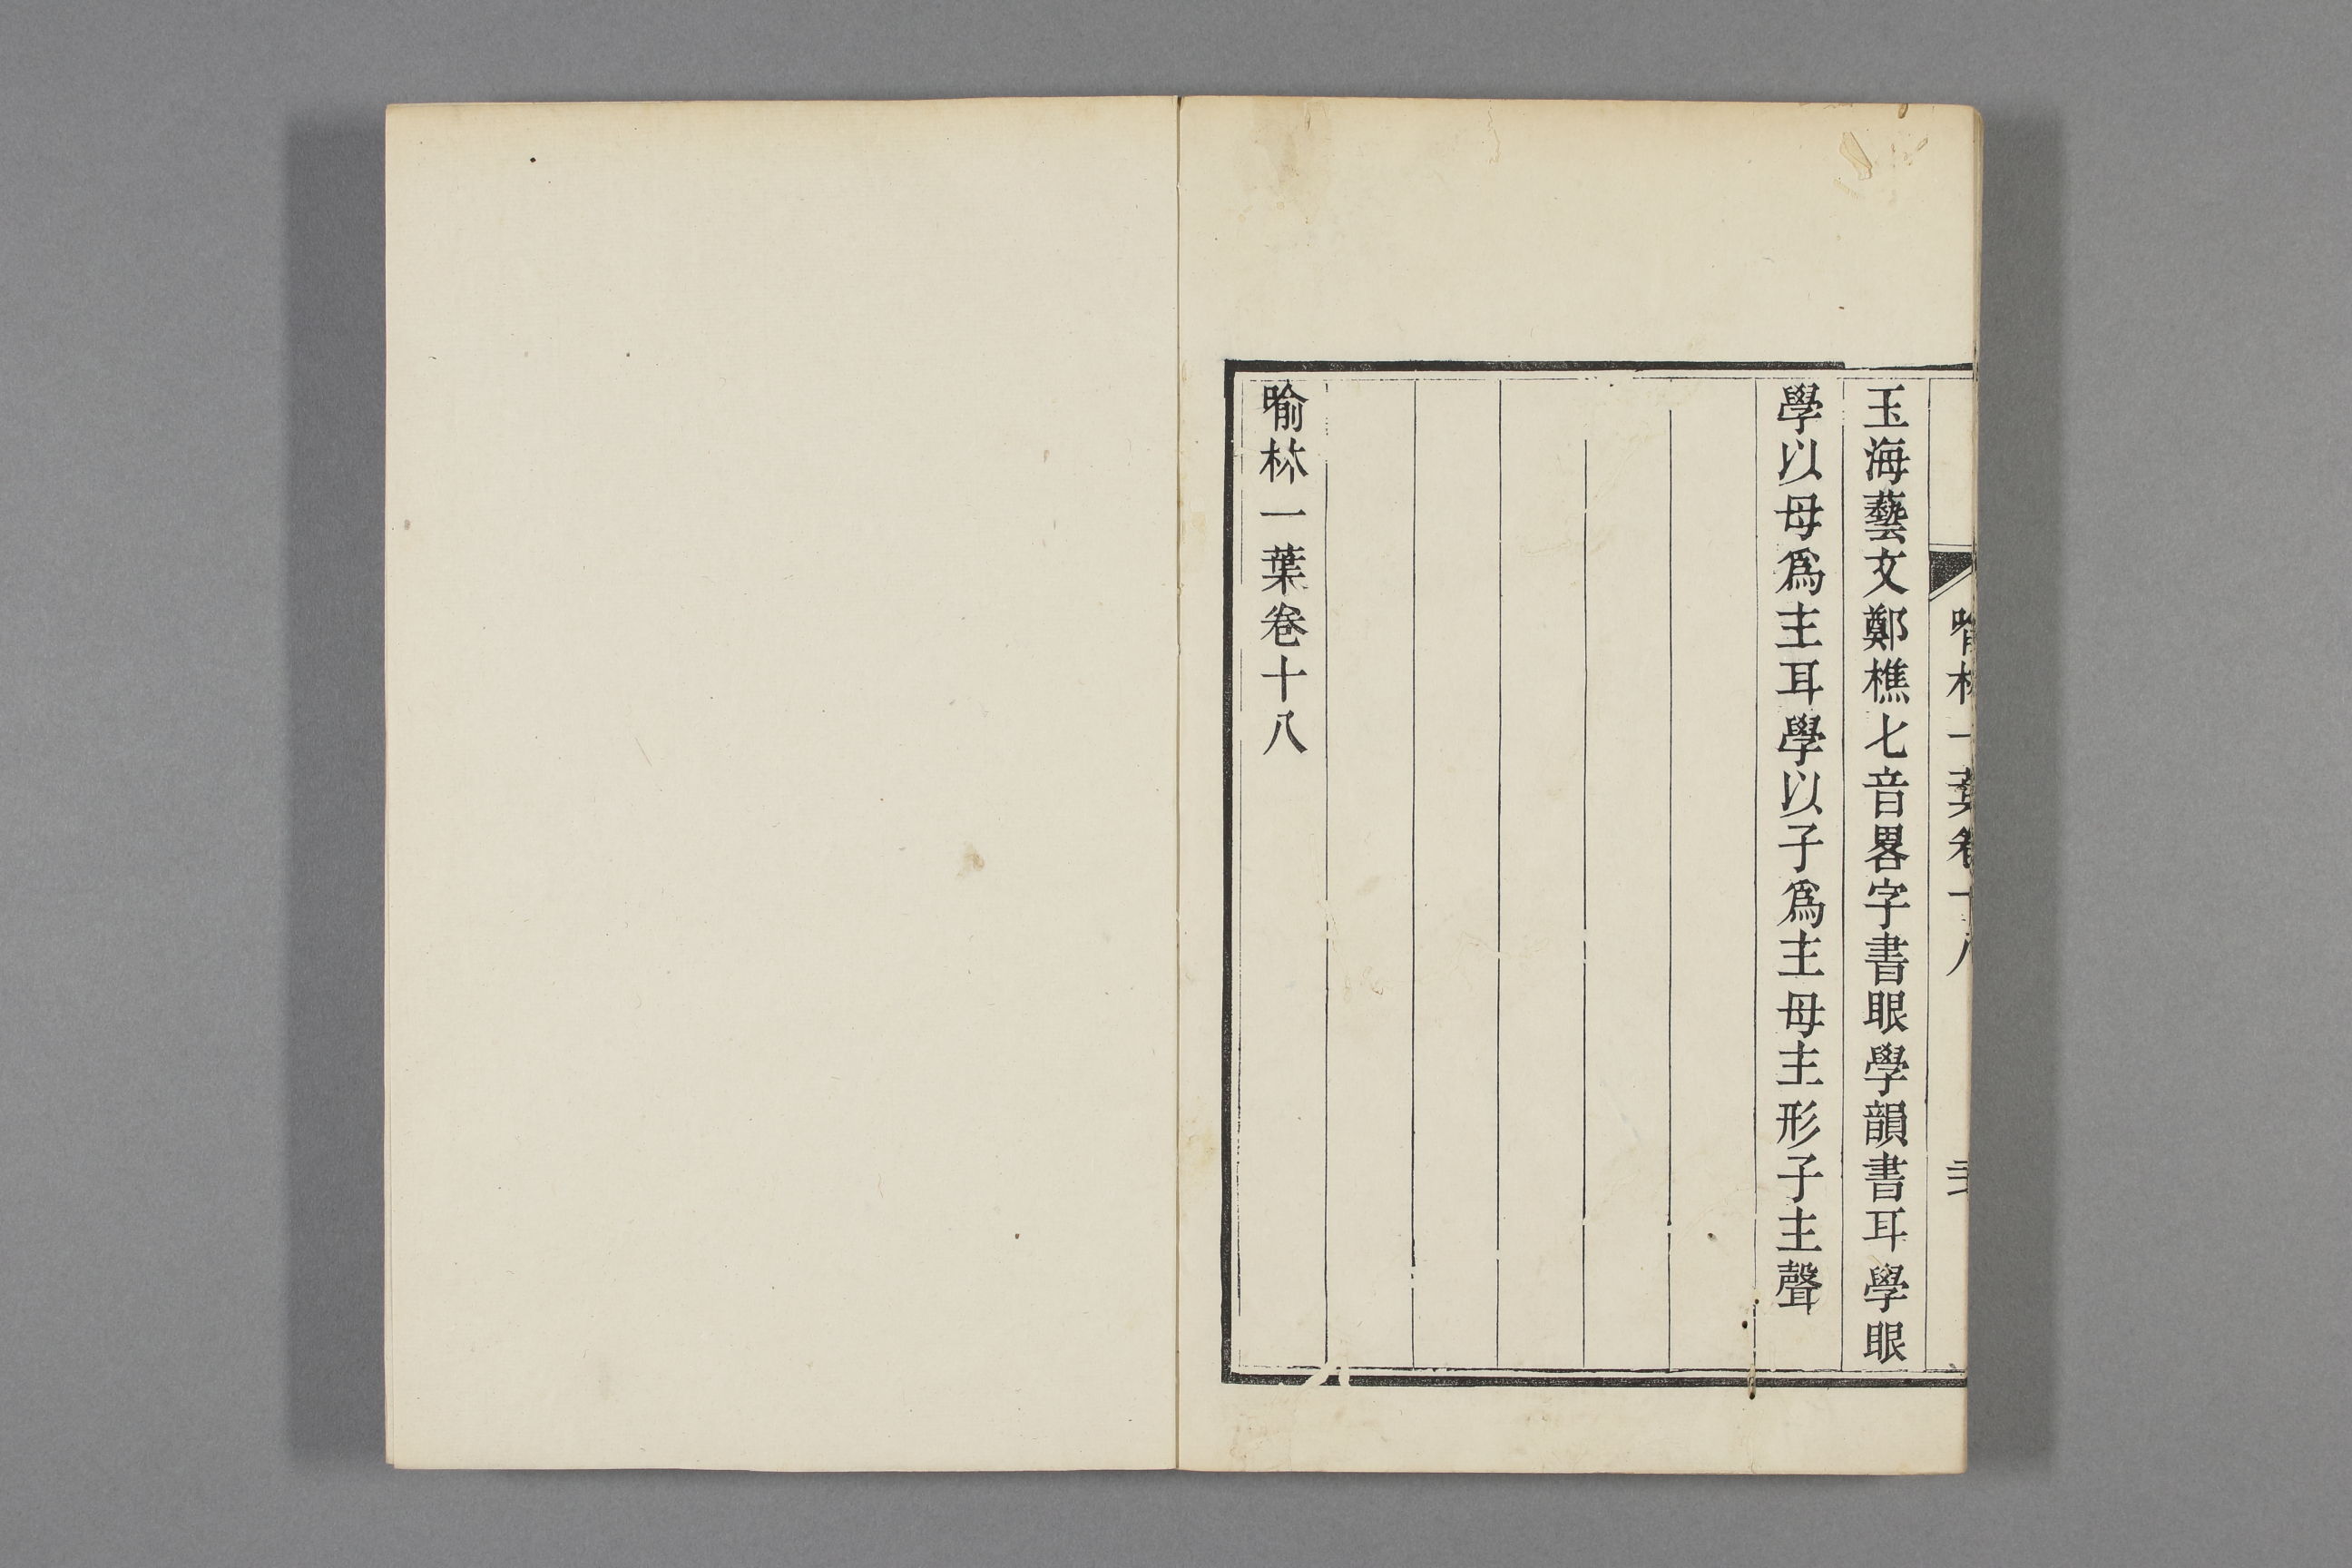 喻林一葉卷十八
玉海藝文鄭樵七音畧字書眼學韻書耳學眼
學以母爲主耳學以子爲主母主形子主聲
喻林一葉卷十八